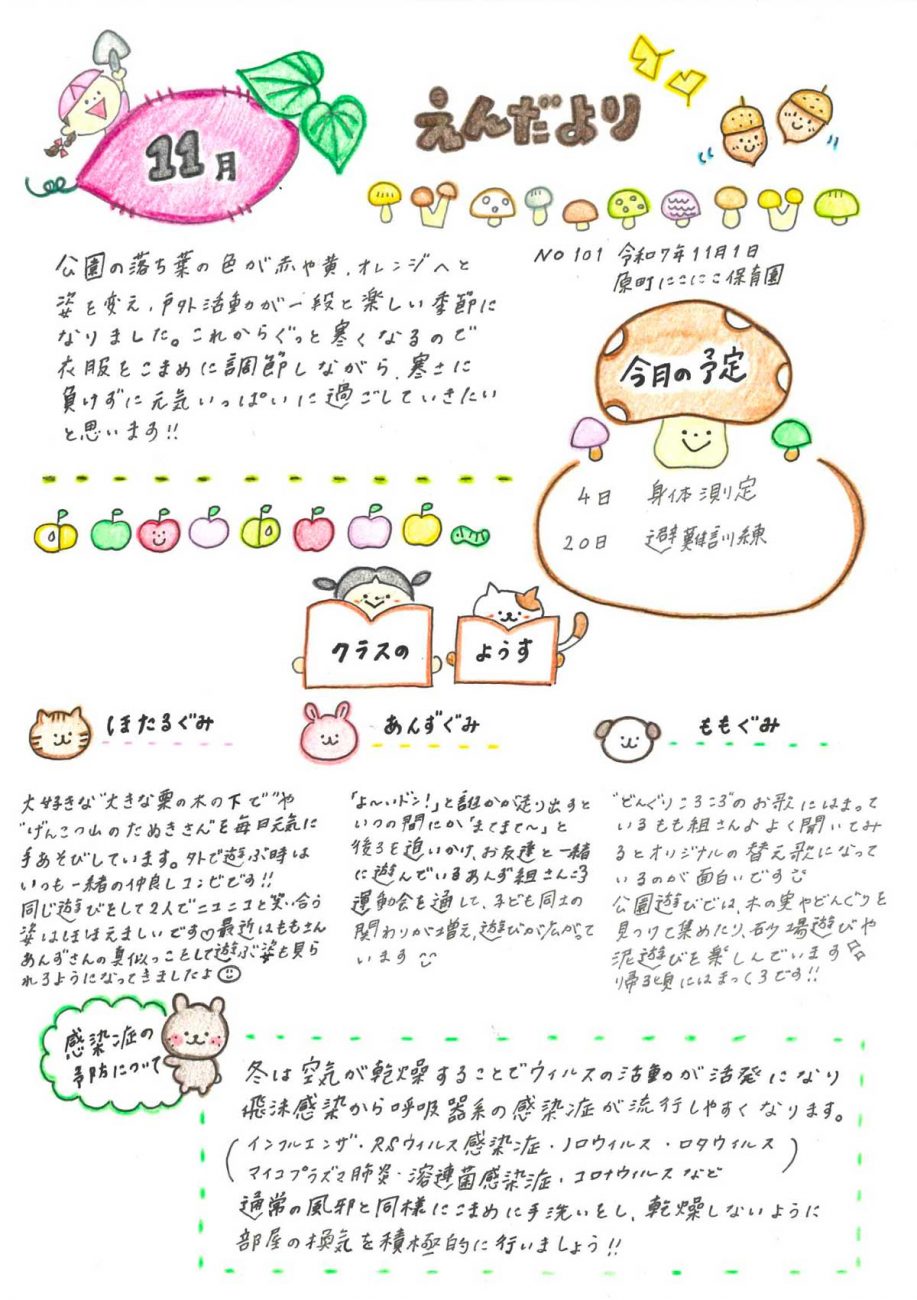 11月
えんだより
NO 101 令和7年11月1日
原町にこにこ保育園
公園の落ち葉の色が赤や黄、オレンジへと
姿を変え、戸外活動が一段と楽しい季節に
なりました。これからぐっと寒くなるので
衣服をこまめに調節しながら、寒さに
負けずに元気いっぱいに過ごしていきたい
と思います!!
今月の予定
4日 身体測定
20日 避難訓練
クラスの
ようす
ほたるぐみ
大好きな"大きな栗の木の下で"や
"げんこつ山のたぬきさん"を毎日元気に
手あそびしています。外で遊ぶ時は
いつも一緒の仲良しコンビです!!
同じ遊びをして2人でニコニコと笑い合う
姿はほほえましいです♡最近はももさん
あんずさんの真似っことして遊ぶ姿も見ら
れるようになってきましたよ☺
あんずぐみ
「よ〜いドン!」と誰かが走り出すと
いつの間にか「まてまて〜」と
後ろを追いかけ、お友達と一緒
に遊んでいるあんず組さん
運動会を通して、子ども同士の
関わりが増え、遊びが広がって
います
ももぐみ
"どんぐりころころ"のお歌にはまって
いるもも組さん♪よく聞いてみ
るとオリジナルの替え歌になって
いるのが面白いです
公園遊びでは、木の実やどんぐりを
見つけて集めたり、砂場遊びや
泥遊びを楽しんでいます
帰る頃にはまっくろです!!
感染症の
予防について
冬は空気が乾燥することでウィルスの活動が活発になり
飛沫感染から呼吸器系の感染症が流行しやすくなります。
(インフルエンザ・RSウィルス感染症・ノロウィルス・ロタウィルス
マイコプラズマ肺炎・溶連菌感染症・コロナウィルスなど)
通常の風邪と同様にこまめに手洗いをし、乾燥しないように
部屋の換気を積極的に行いましょう!!